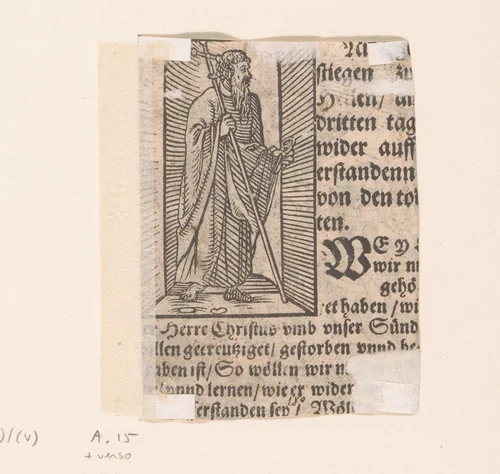 stiegen
dritten tag
wider auff
erstandenn
von den
ten.
WEy
wir
gehö
et haben / wi
Herre Christus vmb vnser Sünd
llen gecreutziget / gestorben vnnd be
aben ist / So wöllen wir
vnnd lernen / wie er wider
erstanden sey / Wöl
)/(v) A. 15
+ verso